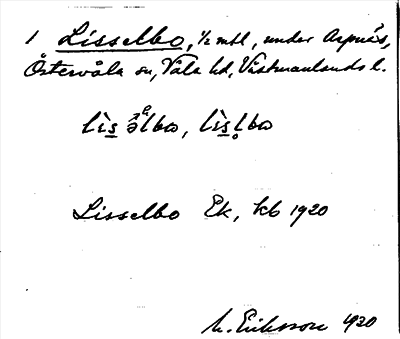 1 Lisselbo, ½ mtl, under Aspnäs,
Östervåla sn, Våla hd, Västmanlands l.
lìs ə̂lbω, lìsl̥bω
Lisselbo Ek, kb 1920
M. Eriksson 1920